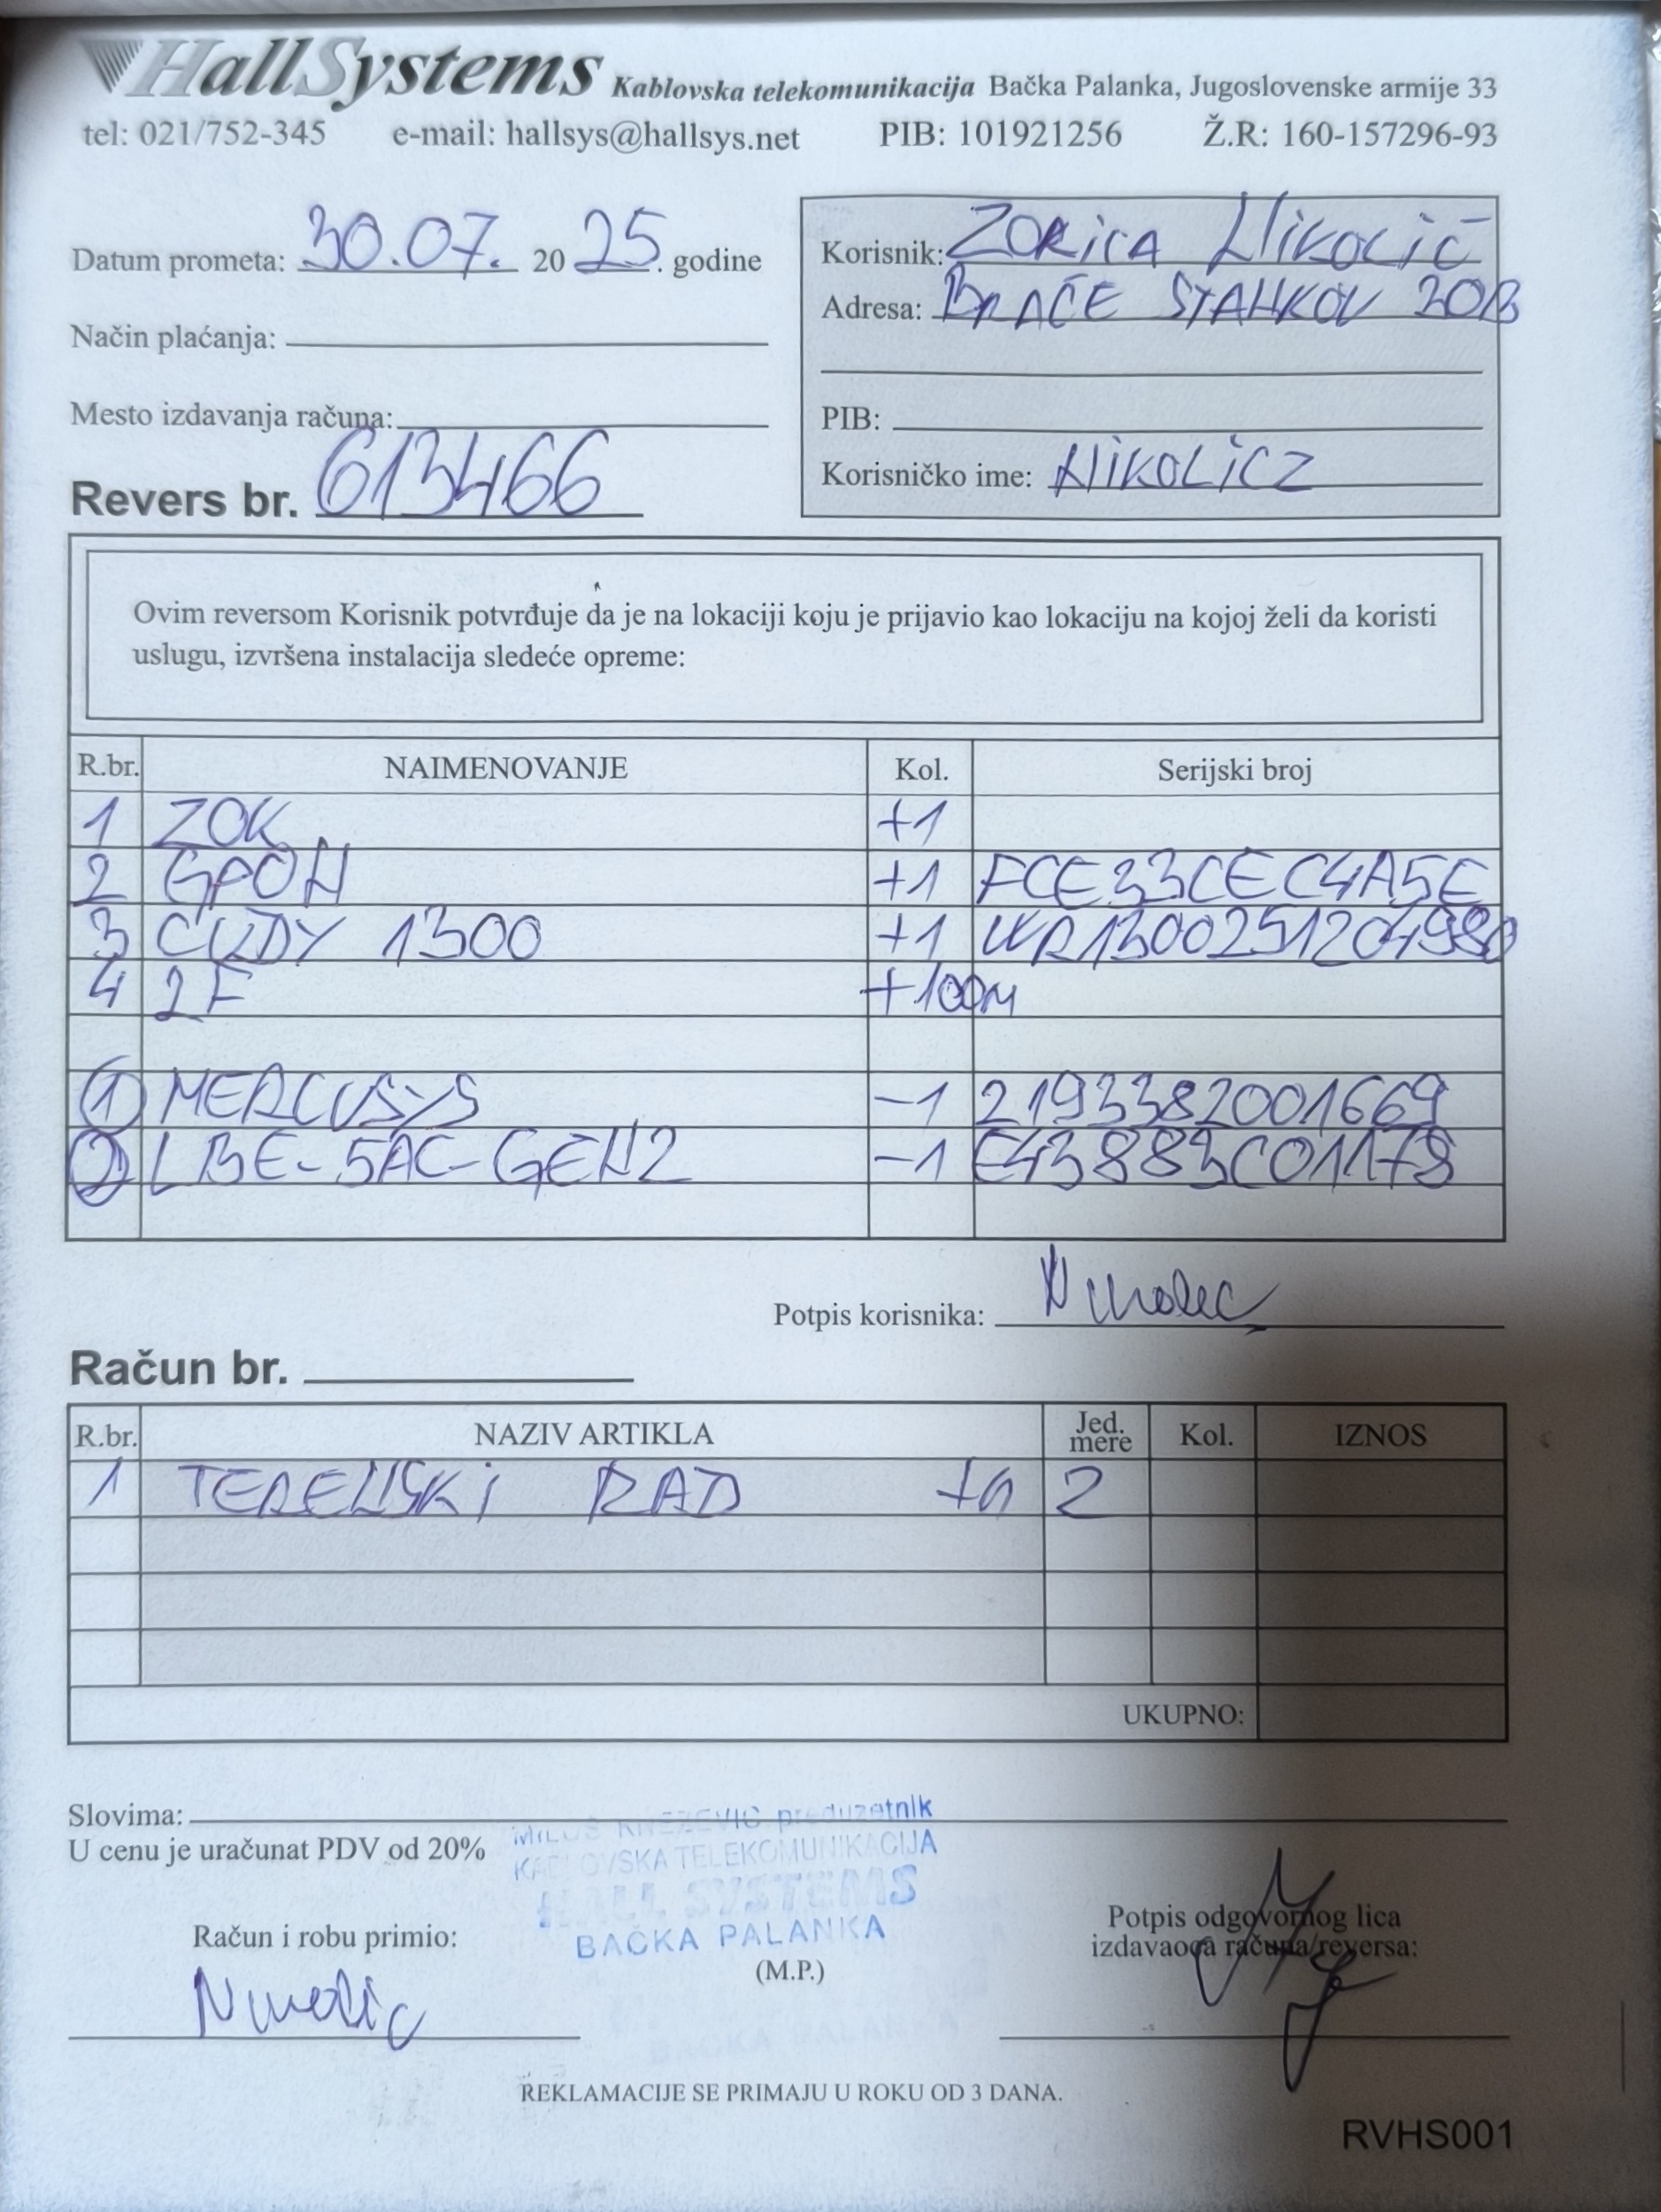 HallSystems Kablovska telekomunikacija Bačka Palanka, Jugoslovenske armije 33
tel: 021/752-345 e-mail: hallsys@hallsys.net PIB: 101921256 Ž.R: 160-157296-93
Datum prometa: 30.07. 2025. godine
Način plaćanja:
Mesto izdavanja računa:
Revers br. 613466
Korisnik: ZORICA NIKOLIĆ
Adresa: BRAĆE STANKOV 30B
PIB:
Korisničko ime: NIKOLICZ
Ovim reversom Korisnik potvrđuje da je na lokaciji koju je prijavio kao lokaciju na kojoj želi da koristi
uslugu, izvršena instalacija sledeće opreme:
R.br. NAIMENOVANJE Kol. Serijski broj
1 ZOK +1
2 GPON +1 FCE33CEC4A5E
3 CUDY 1300 +1 WR1300251204980
4 2F +100M
1 MERCUSYS -1 2193382001669
2 LBE-5AC-GEN2 -1 E43883C01178
Potpis korisnika: Nikolic
Račun br.
R.br. NAZIV ARTIKLA Jed. mere Kol. IZNOS
1 TERENSKI RAD 2
UKUPNO:
Slovima:
U cenu je uračunat PDV od 20%
MILOŠ KNEŽEVIĆ preduzetnik
KABLOVSKA TELEKOMUNIKACIJA
HALL SYSTEMS
BAČKA PALANKA
(M.P.)
Račun i robu primio:
Nikolic
Potpis odgovornog lica
izdavaoca računa/reversa:
REKLAMACIJE SE PRIMAJU U ROKU OD 3 DANA.
RVHS001